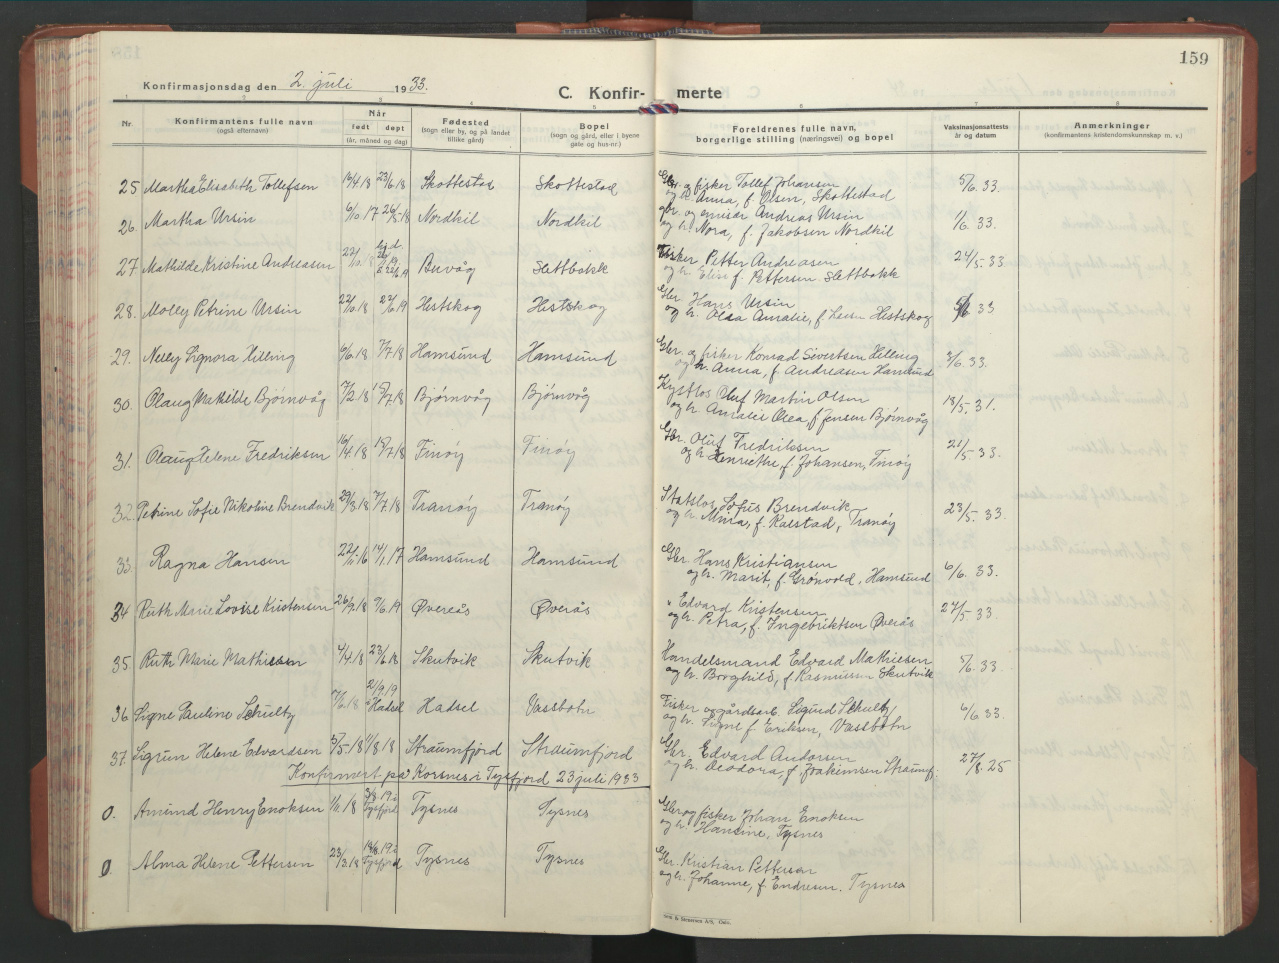 159
Konfirmasjonsdag den 2. juli 1933.
C. Konfirmerte
Nr.
Konfirmantens fulle navn
(også efternavn)
Når
født
døpt
(år, måned og dag)
Fødested
(sogn eller by, og på landet
tillike gård)
Bopel
(sogn og gård, eller i byene
gate og hus-nr.)
Foreldrenes fulle navn,
borgerlige stilling (næringsvei) og bopel
Vaksinasjonsattests
år og datum
Anmerkninger
(konfirmantens kristendomskunnskap m. v.)
25 Martha Elisabeth Tollefsen 19/4 18 23/6 18 Skottestad Skottestad Gbr. og fisker Tollef Johansen 5/6. 33.
og h. Anna, f. Olsen, Skottestad
26. Martha Ursin 6/10 17 26/5 18 Nordkil Nordkil Gbr. og emisær Andreas Ursin 1/6 33.
og h. Nora, f. Jakobsen Nordkil
27 Mathilde Kristine Andreasen Buvåg Slettbakk Fisker Petter Andreasen 24/5-33.
og h. Elise f. Pettersen Slettbakk
28. Molly Petrine Ursin 22/10 18 22/6 19 Hestskog Hestskog Gbr. Hans Ursin 33
og h. Olea Amalie, f. Hestskog
29. Nelly Signora Hilling 6/6.18 7/7 18 Hamsund Hamsund Gbr. og fisker Konrad Sivertsen Hilling 3/6 33.
og h. Anna, f. Andreasen Hamsund
30. Olaug Mathilde Bjørnvåg 7/2 18 Bjørnvåg Bjørnvåg Kystlos Oluf Martin Olsen 18/5. 31.
og h. Amalie Olea, f Jensen Bjørnvåg
31. Olaug Helene Fredriksen 16/4 18 Finøy Finøy Gbr. Oluf Fredriksen 21/5 33.
og h. Henriette f. Johansen, Finøy
32. Petrine Sofie Nikoline Brendvik 29/3 18 7/7. 18 Tranøy Tranøy Statslos Sofus Brendvik 23/5. 33.
og h. Mina, f. Kalstad, Tranøy
33. Ragna Hansen 22/11 16 14/1 17 Hamsund Hamsund Gbr. Hans Kristiansen 6/6 33.
og h. Marit, f. Grønvold, Hamsund
34 Ruth Marie Lovise Kristensen 26/9 18 9/6 19 Øverås Øverås " Edvard Kristensen 27/5- 33
og h. Petra, f. Ingebriktsen Øverås
35. Ruth Marie Mathisen 4/4 18 23/6 18 Skutvik Skutvik Handelsmand Edvard Mathiesen 5/6. 33.
og h. Borghild, f. Rasmussen Skutvik
36 Signe Pauline Schultz 7/6 18 21/9 19 i Hadsel Hadsel Vassbotn Fisker og gårdsarb. Sigurd Schultz 6/6 33.
og h. Signe f Eriksen, Vassbotn
37. Sigrun Helene Edvardsen 5/5-18 11/8 18 Straumfjord Straumfjord Gbr. Edvard Andorsen 27/8.25
og h. Deodora, f Joakimsen Straumf.
Konfirmert på Korsnes i Tysfjord 23 juli 1933
0. Amund Henry Enoksen 1/11 18 3/8 19 i Tysfjord Tysnes Tysnes Gbr og fisker Johan Enoksen
og h. Hansine, Tysnes
0. Alma Helene Pettersen 23/3 18 Tysfjord Tysnes Tysnes Gbr. Kristian Pettersen
og h. Johanne, f. Endresen. Tysnes